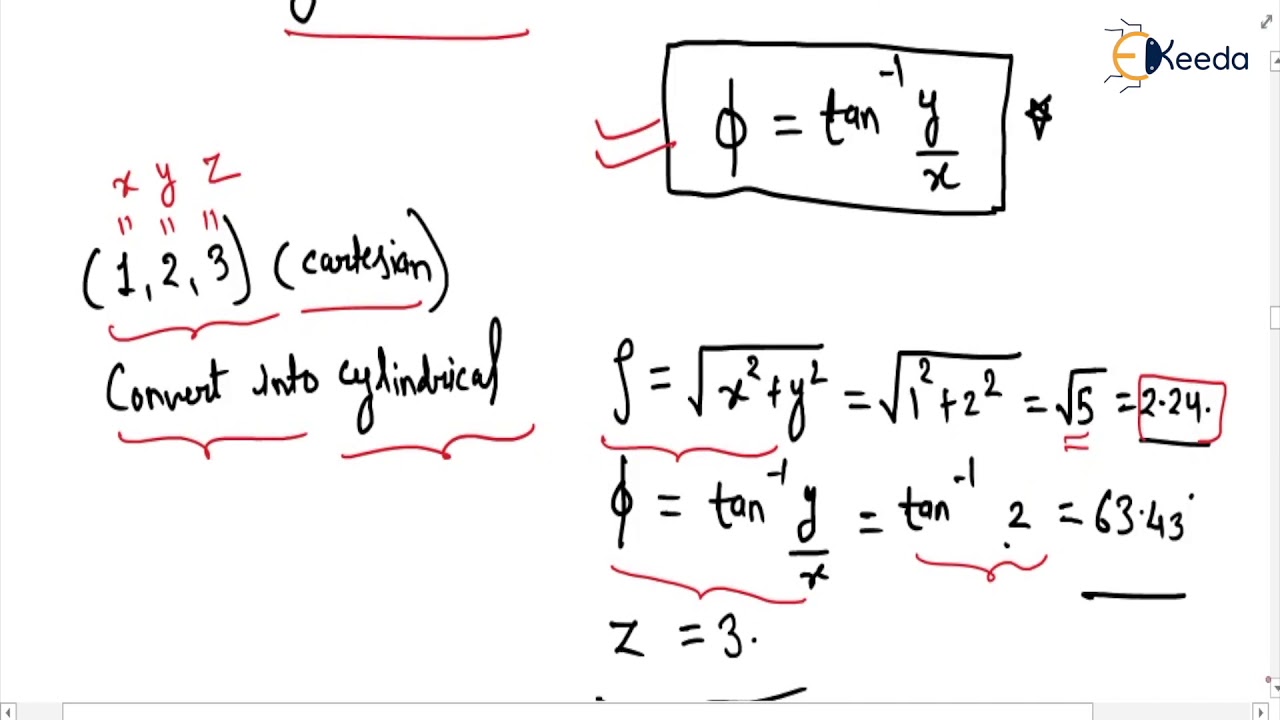 EKeeda
ϕ = tan⁻¹ y/x
x y z
" " "
(1, 2, 3) (cartesian)
Convert into cylindrical
ρ = √x²+y² = √1²+2² = √5 = 2.24.
ϕ = tan⁻¹ y/x = tan⁻¹ 2 = 63.43°
z = 3.